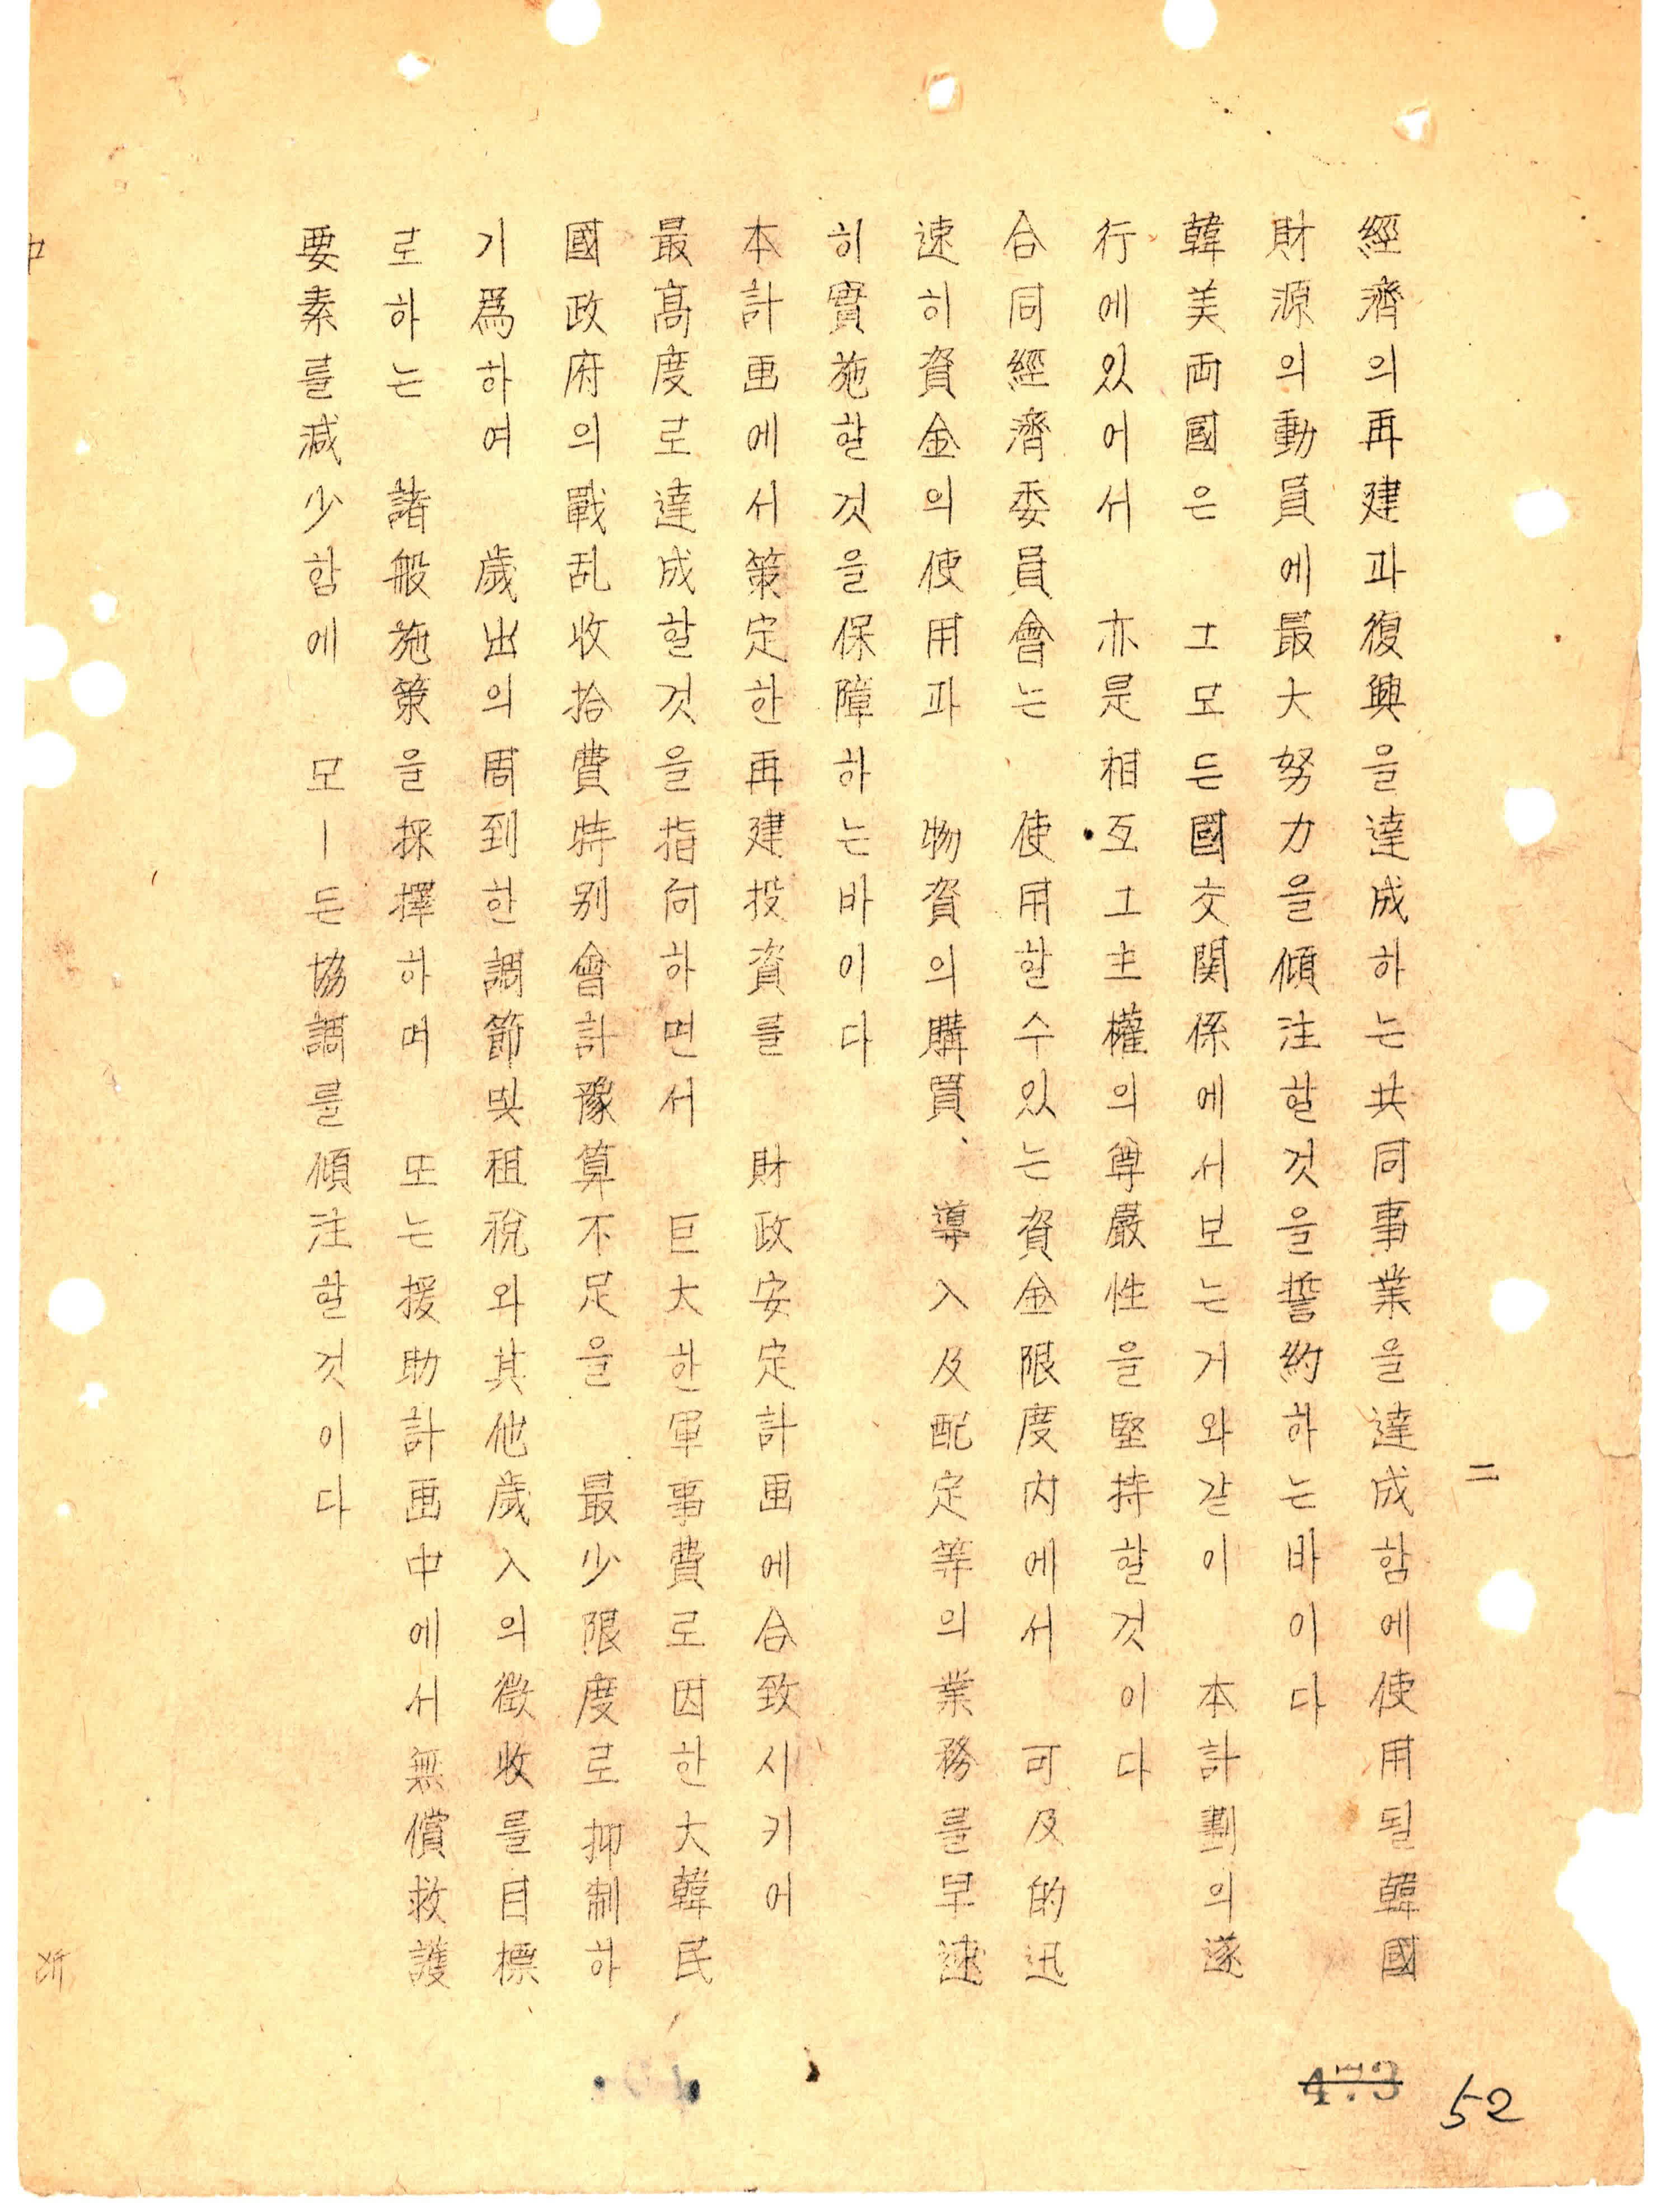 二
經濟의再建과復興을達成하는共同事業을達成함에使用될韓國
財源의動員에最大努力을傾注할것을誓約하는바이다
韓美両國은 그모든國交関係에서보는거와같이 本計劃의遂
行에있어서 亦是相互그主權의尊嚴性을堅持할것이다
合同經濟委員會는 使用할수있는資金限度內에서 可及的迅
速히資金의使用과 物資의購買、導入及配定等의業務를早速
히實施할것을保障하는바이다
本計画에서策定한再建投資를 財政安定計画에合致시키어
最高度로達成할것을指向하면서 巨大한軍事費로因한大韓民
國政府의戰乱收拾費特別會計豫算不足을 最少限度로抑制하
기爲하여 歲出의周到한調節및租稅와其他歲入의徵收를目標
로하는 諸般施策을採擇하며 또는援助計画中에서無償救護
要素를减少함에 모ー든協調를傾注할것이다
52